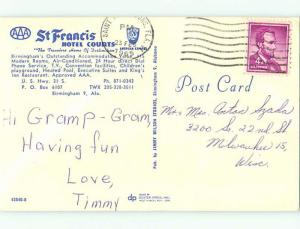 AAA
St Francis
HOTEL COURTS
"The Travelers Home Of Distinction"
Birmingham's Outstanding Accommodations
Modern Rooms, Air-Conditioned, 24 Hour Direct Dial
Phone Service, T.V., Convention facilities, Children's
playground, Heated Pool, Executive Suites and King's
Inn Restaurant. Approved AAA.
U. S. Hwy. 31 S. Ph. 871-0343
P. O. Box 6107 TWX 205-328-3011
Birmingham 9, Ala.
Hi Gramp-Gram,
Having fun
Love,
Timmy
42840-B
Pub. by JERRY WILSON STUDIOS, Birmingham 9, Alabama
dp
SAINT
PM
4¢
Post Card
Mr + Mrs. Anton
3200 So. 22nd St
Milwaukee 15,
Wisc.